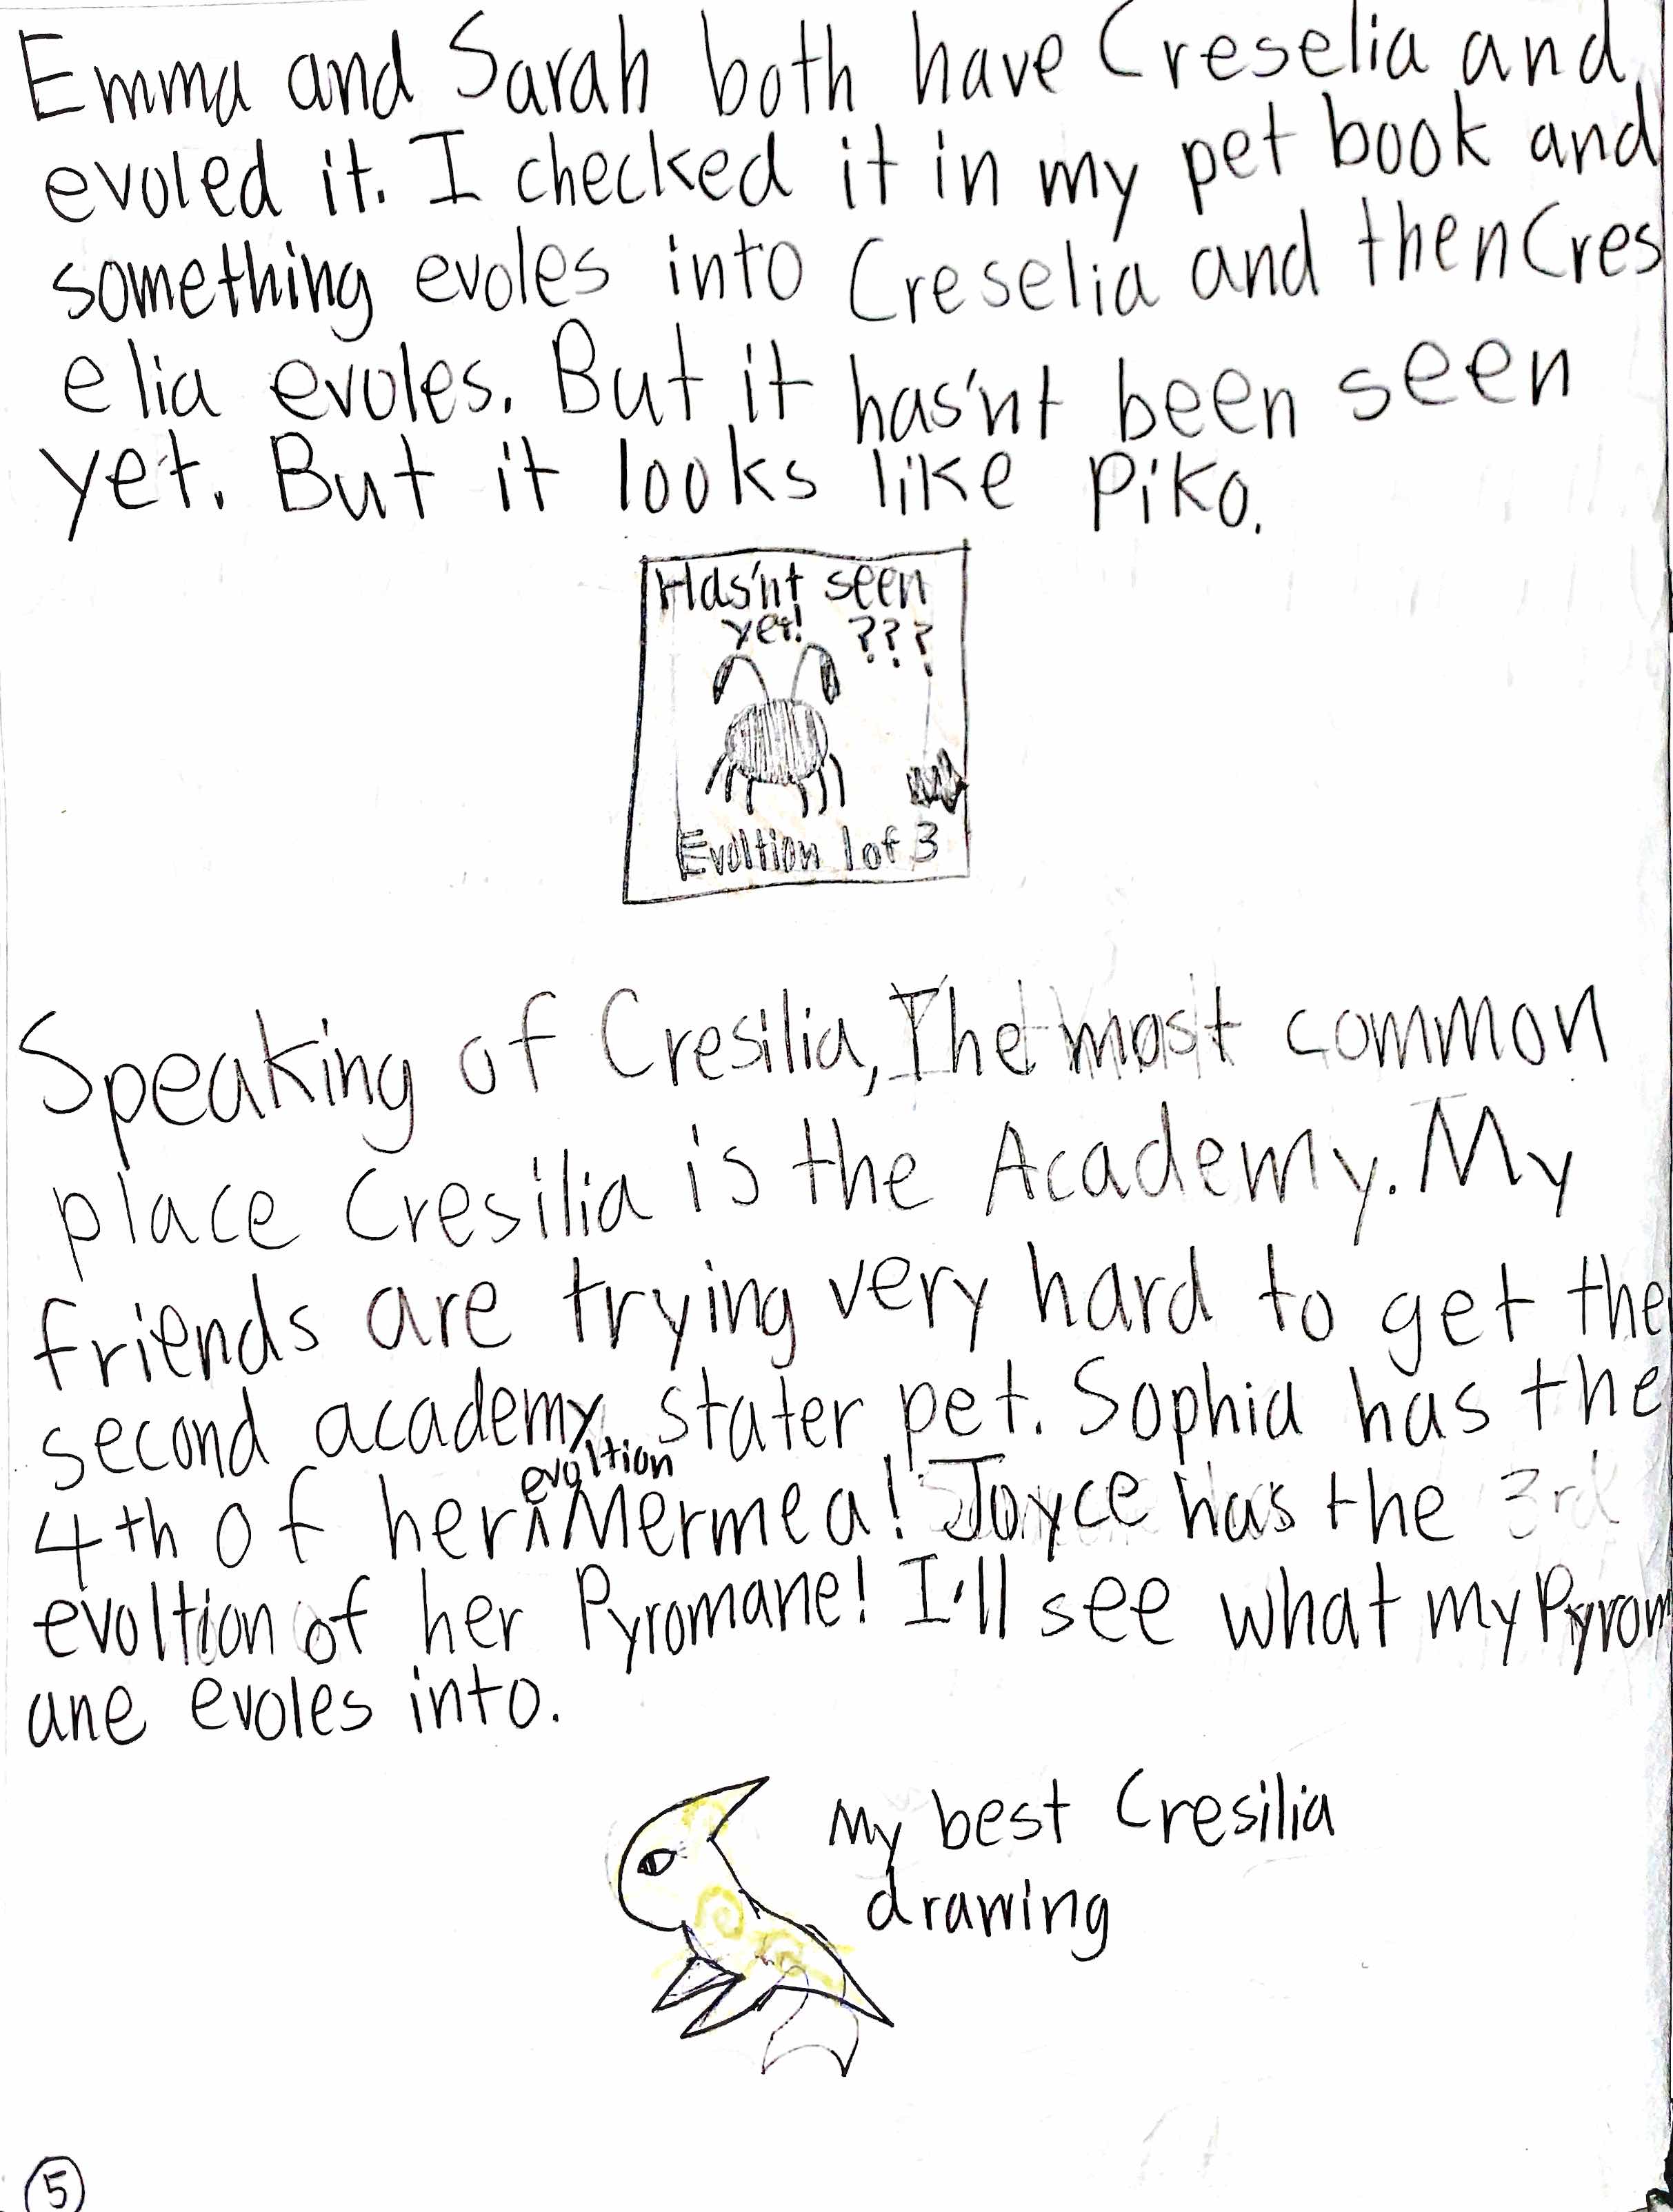 Emma and Sarah both have Creselia and
evoled it. I checked it in my pet book and
something evoles into Creselia and then Cres
elia evoles. But it has'nt been seen
yet. But it looks like Piko.
Has'nt seen
yet! ???
Evoltion 1 of 3
Speaking of Cresilia, The most common
place Cresilia is the Academy. My
friends are trying very hard to get the
second academy stater pet. Sophia has the
evoltion
4th of her ^ Mermea! Joyce has the 3rd
evoltion of her Pyromane! I'll see what my Pyrom
ane evoles into.
My best Cresilia
drawing
5